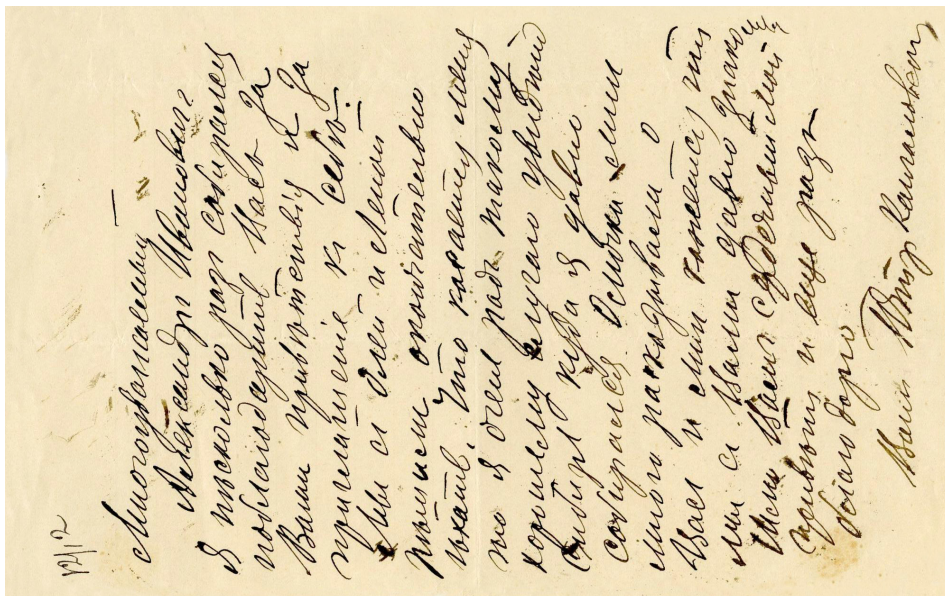 Многоуважаемый
Александр Иванович!
Я несколько раз собирался
поблагодарить Васъ за
Ваши приветствія и за
приглашеніе к себѣ.
Мы с Олей и Леной
решили окончательно
ѣхать. Что касается меня
то я очень радъ такому
хорошему случаю увидѣть
Сибирь куда я давно
собирался.
много рассказывали о
Васъ и мнѣ кажется что
мы с Вами давно знакомы
Шлем Вамъ сердечный мой
привѣтъ и еще разъ
благодарю
Вашъ Петр Кончаловский